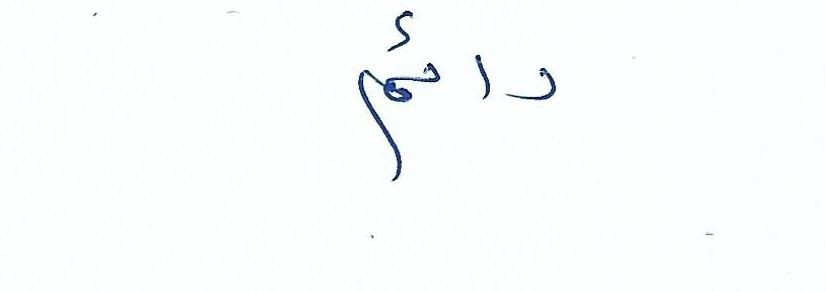 دائم